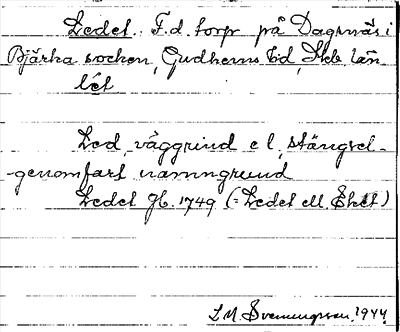 Ledet. F.d. torp på Dagsnäs i
Bjärka socken, Gudhems hd, Skb. län
lét
Led, väggrind e l, stängsel-
-genomfart namngrund
Ledet Jb. 1749 (= Ledet ell.
L. M. Svenungsson. 1944